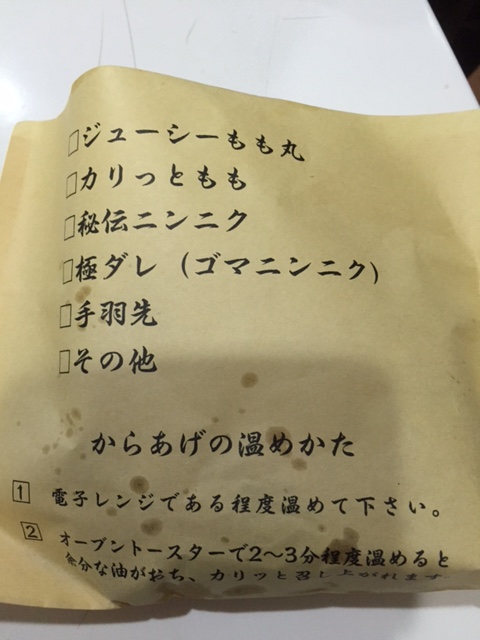 □ジューシーもも丸
□カリっともも
□秘伝ニンニク
□極ダレ（ゴマニンニク）
□手羽先
□その他
からあげの温めかた
1 電子レンジである程度温めて下さい。
2 オーブントースターで2〜3分程度温めると
余分な油がおち、カリッと召し上がれます